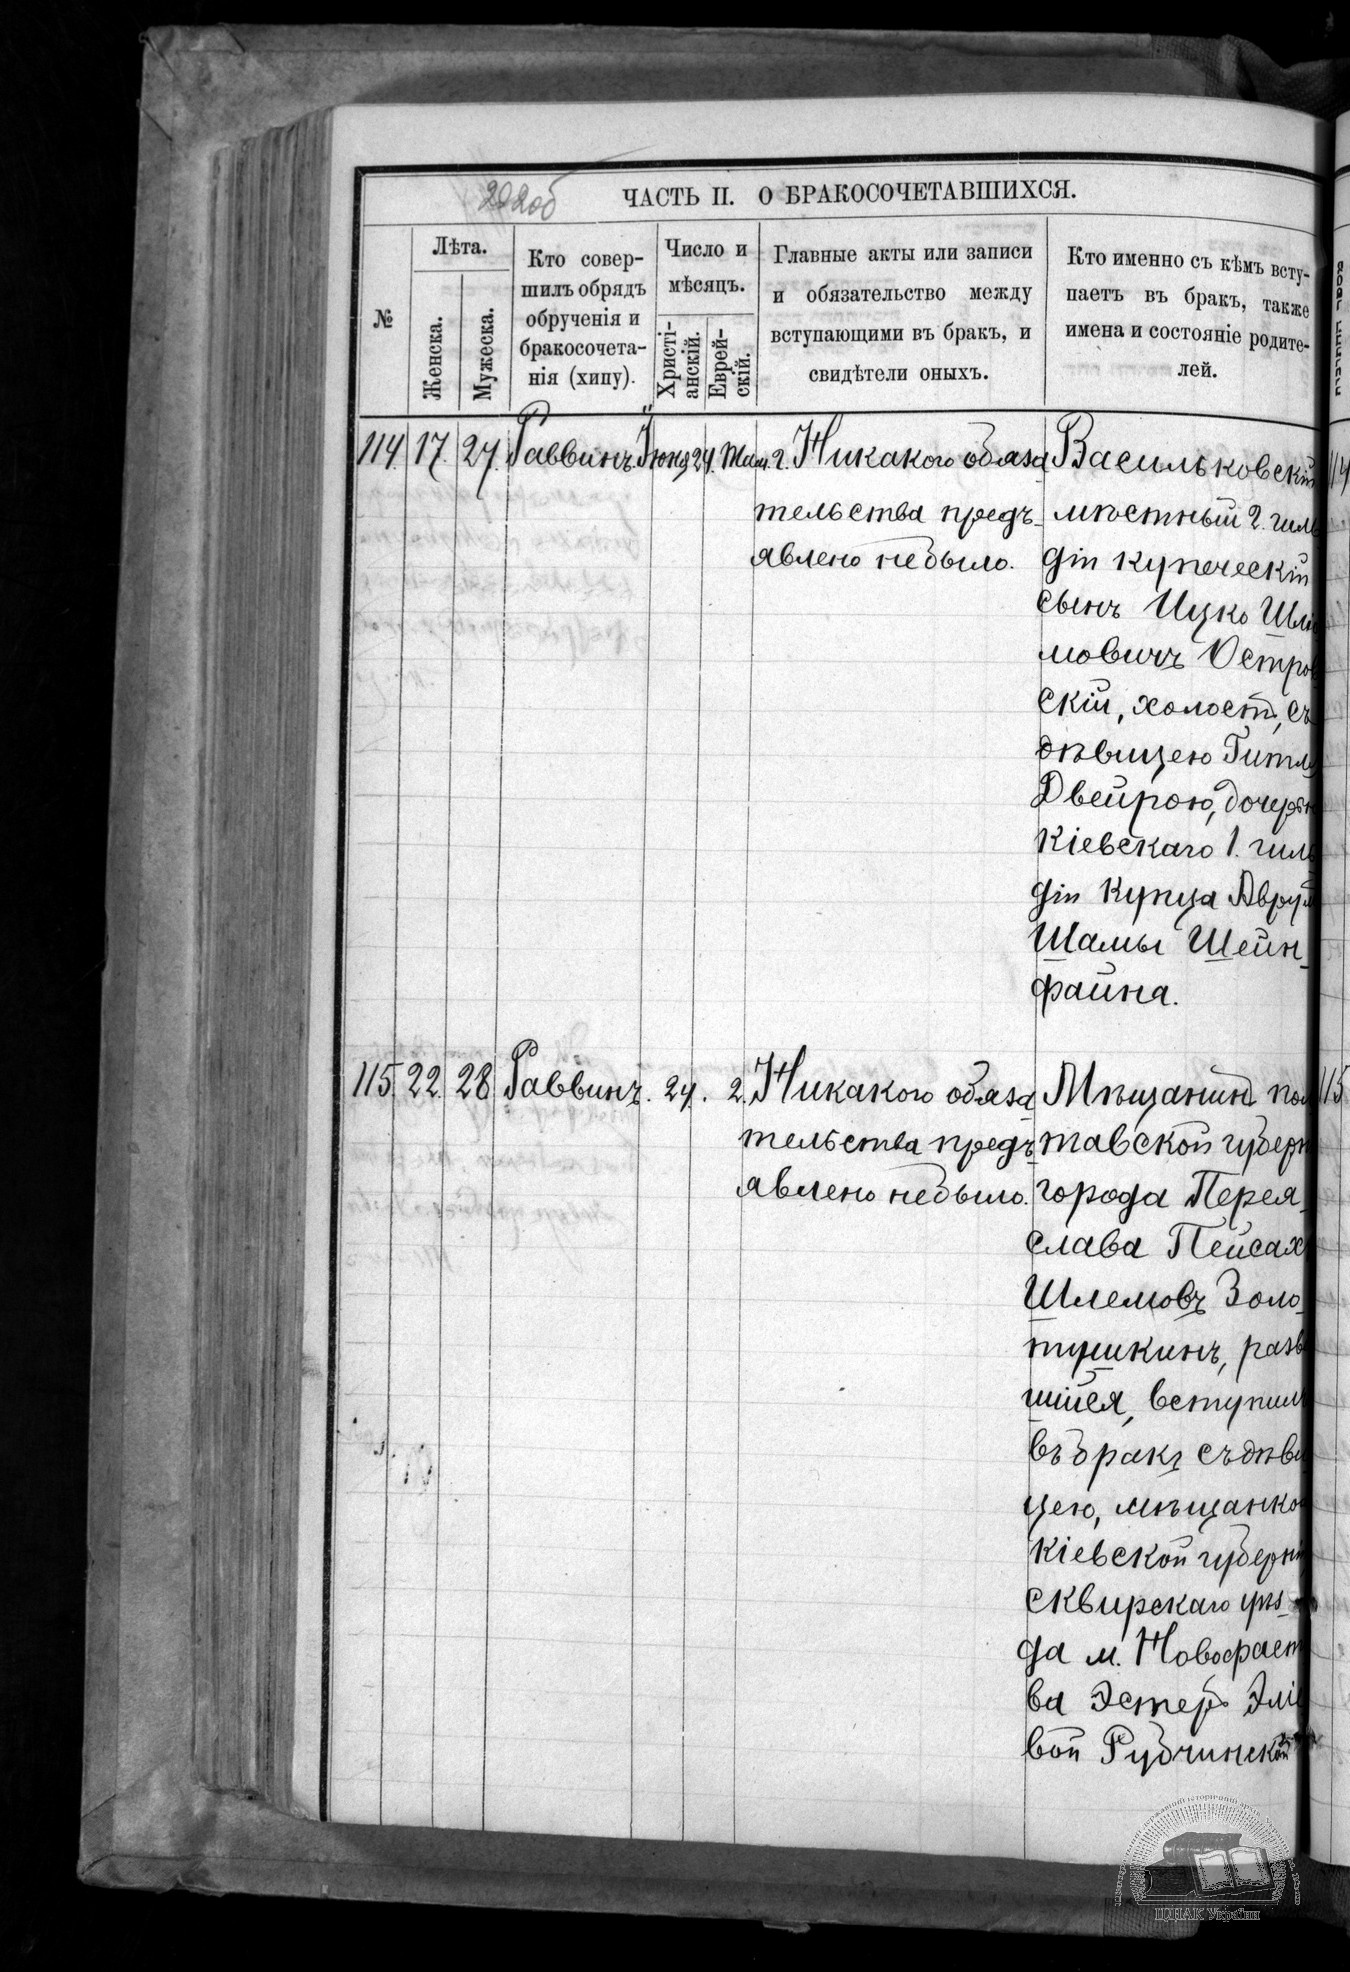 292об
ЧАСТЬ II. О БРАКОСОЧЕТАВШИХСЯ.
№
Лѣта.
Женска.
Мужеска.
Кто совер-
шилъ обрядъ
обрученія и
бракосочета-
нія (хипу).
Число и
мѣсяцъ.
Христі-
анскій.
Еврей-
скій.
Главные акты или записи
и обязательство между
вступающими въ бракъ, и
свидѣтели оныхъ.
Кто именно съ кѣмъ всту-
паетъ въ бракъ, также
имена и состояніе родите-
лей.
114. 17. 27. Раввинъ. Іюня 24. Там. 2. Никакого обяза
тельства предъ-
явлено небыло.
Васильковскій
мѣстный 2. гиль
діи купеческій
сынъ Ицко Шлио
мовичъ Остров
скій, холост, съ
дѣвицею Гитл
Двейрою, дочерью
Кіевскаго 1. гиль
діи Купца Аврум
Шамы Шейн-
файна.
114
115. 22. 28 Раввинъ. 24. 2. Никакого обяза
тельства предъ-
явлено небыло.
Мѣщанин пол
тавской губерн
города Перея-
слава Пейсах
Шлемовъ Золо-
тушкинъ, разв
шійся, вступилъ
въ бракъ съ дѣви
цею, мѣщанкою
Кіевской губерн
сквирскаго уѣз-
да м. Новофаст
ва Эстер Элі
вой Рубчинской
115
ЦДІАК України